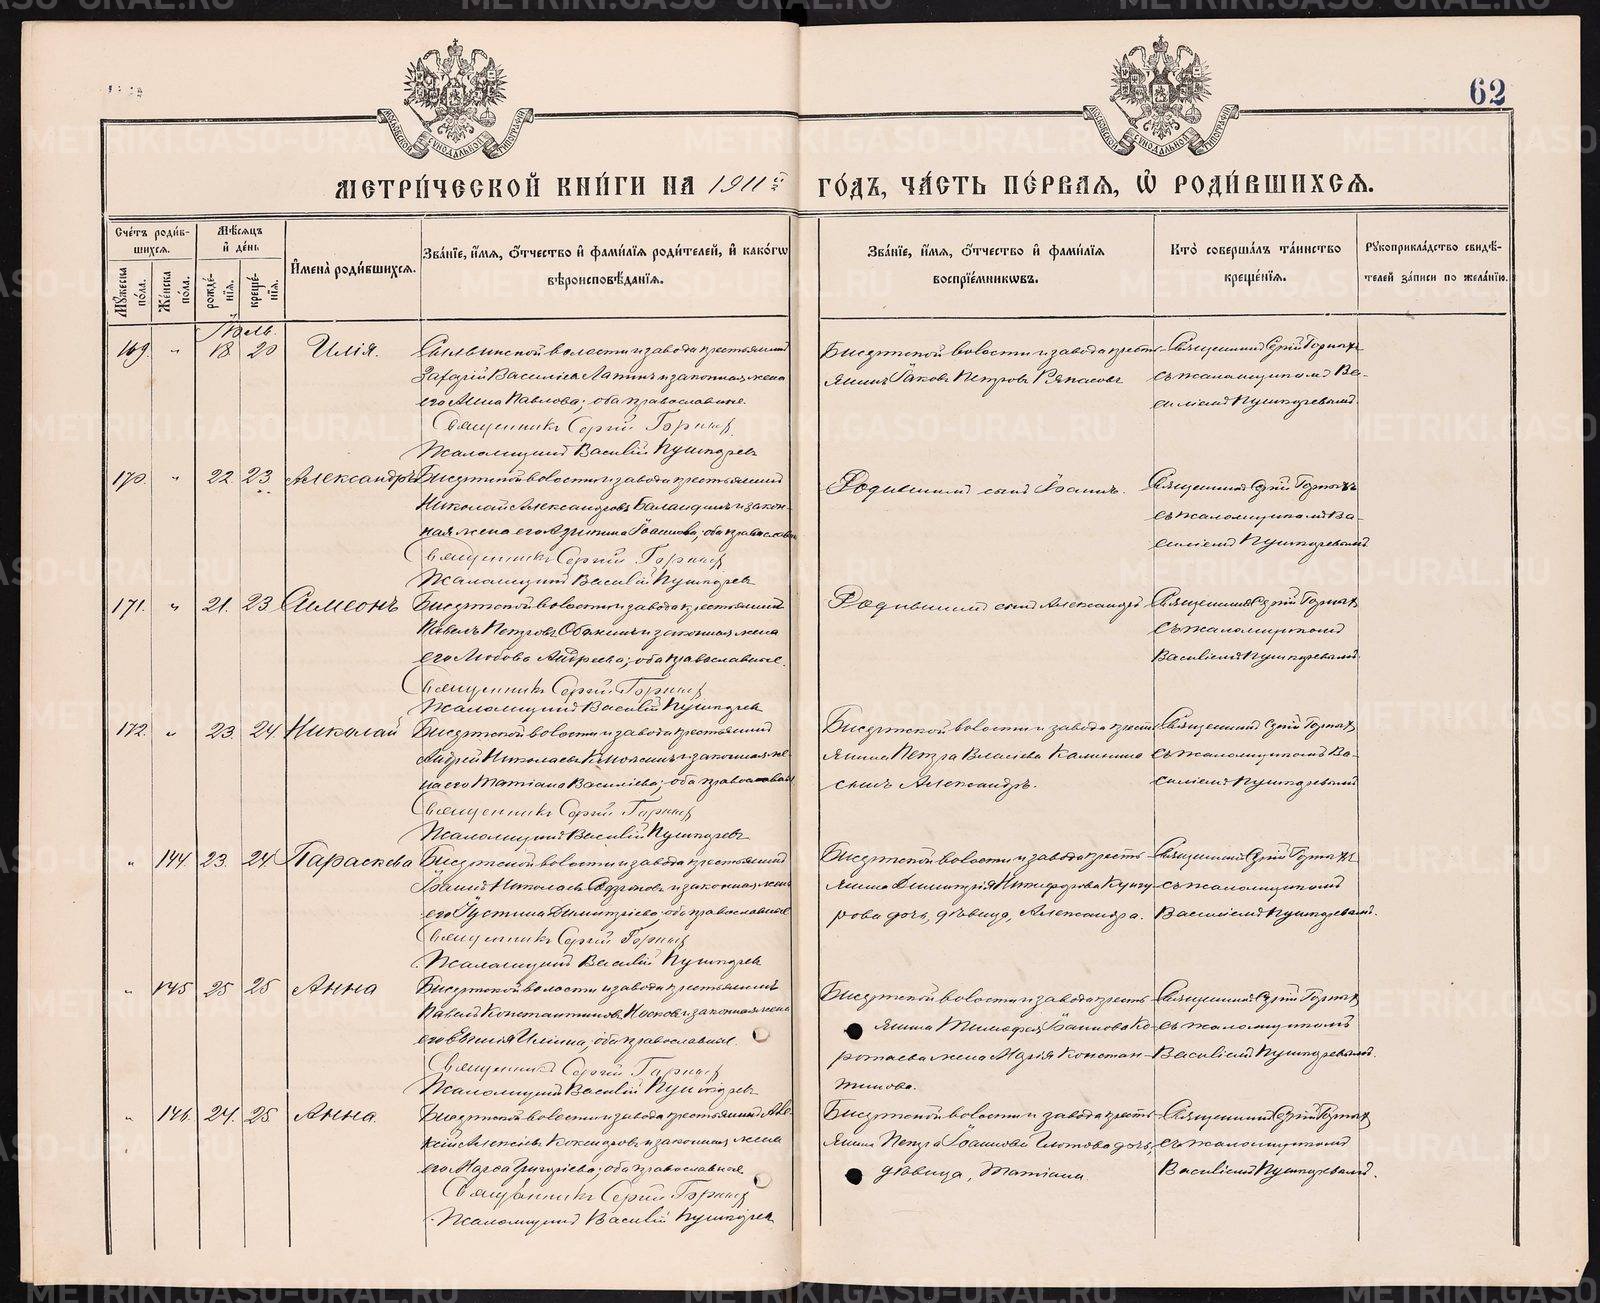 62
МЕТРИ́ЧЕСКОЙ КНИ́ГИ НА 1911й ГО́ДЪ, ЧА́СТЬ ПЕ́РВАЯ, Ѡ҆ РОДИ́ВШИХСЯ.
Сче́тъ роди́в-
шихся.
Му́жеска по́ла.
Же́нска по́ла.
Мѣ́сяцъ
и҆ де́нь
рожде́-
нія.
креще́-
нія.
И҆мена̀ роди́вшихся.
Зва́нїе, и҆́мя, ѻ҆́тчество и҆ фами́лїя роди́телей, и҆ како́гѡ
вѣроисповѣ́данїя.
Зва́нїе, и҆́мя, ѻ҆́тчество и҆ фами́лїя
воспрїе́мникѡвъ.
Кто̀ соверша́лъ та́инство
креще́нїя.
Рꙋкоприкла́дство свидѣ́-
телей за́писи по жела́нїю.
Іюль.
169. " 18 20 Илія.
Сылвинской волости и завода крестьянинъ
Захарій Василіевъ Лапинъ и законная жена
его Анна Павлова; оба православные.
Священникъ Сергій Горныхъ
Псаломщикъ Василій Пушкаревъ
Бисертской волости и завода кресть-
янинъ Іаковъ Петровъ Ряпасовъ
Священникъ Сергій Горныхъ
съ псаломщикомъ Ва-
силіемъ Пушкаревымъ.
170. " 22 23 Александръ
Бисертской волости и завода крестьянинъ
Николай Александровъ Баландинъ и закон-
ная жена его Іоаннова; оба православн
Священникъ Сергій Горныхъ
Псаломщикъ Василій Пушкаревъ
Родившій сынъ Іоаннъ.
Священникъ Сергій Горныхъ
съ псаломщикомъ Ва-
силіемъ Пушкаревымъ
171. " 21. 23 Симеонъ
Бисертской волости и завода крестьянинъ
Павелъ Петровъ и законная жена
его Любовь Андреева; оба православные.
Священникъ Сергій Горныхъ
Псаломщикъ Василій Пушкаревъ
сынъ Александръ
Священникъ Сергій Горныхъ
съ псаломщикомъ
Василіемъ Пушкаревымъ
172. " 23. 24 Николай
Бисертской волости и завода крестьянинъ
Андрей Николаевъ и законная же-
на его Татіана Василіева; оба православные
Священникъ Сергій Горныхъ
Псаломщикъ Василій Пушкаревъ
Бисертской волости и завода кресть-
янина Петра Власіева Калинина
сынъ Александръ.
Священникъ Сергій Горныхъ
съ псаломщикомъ Ва-
силіемъ Пушкаревымъ
" 144. 23. 24 Параскева
Бисертской волости и завода крестьянинъ
Іоаннъ Николаевъ и законная жена
его Іустина Димитріева; оба православные
Священникъ Сергій Горныхъ
Псаломщикъ Василій Пушкаревъ
Бисертской волости и завода кресть-
янина Димитрія Никифорова
дочь, дѣвица, Александра.
Священникъ Сергій Горныхъ
съ псаломщикомъ
Василіемъ Пушкаревымъ.
" 145 25 25 Анна
Бисертской волости и завода крестьянинъ
Павелъ Константиновъ Носковъ и законная жена
его Евгенія Ильина; оба православные.
Священникъ Сергій Горныхъ
Псаломщикъ Василій Пушкаревъ
Бисертской волости и завода кресть-
янина Тимофея Іоаннова Ко-
ротаева жена Марія Констан-
тинова.
Священникъ Сергій Горныхъ
съ псаломщикомъ
Василіемъ Пушкаревымъ.
" 146. 24. 25 Анна.
Бисертской волости и завода крестьянинъ Але-
ксій Алексіевъ и законная жена
его Марѳа Григоріева; оба православные
Священникъ Сергій Горныхъ
Псаломщикъ Василій Пушкаревъ
Бисертской волости и завода кресть-
янина Петра Іоаннова дочь,
дѣвица, Татіана.
Священникъ Сергій Горныхъ
съ псаломщикомъ
Василіемъ Пушкаревымъ.
METRIKI.GASO-URAL.RU